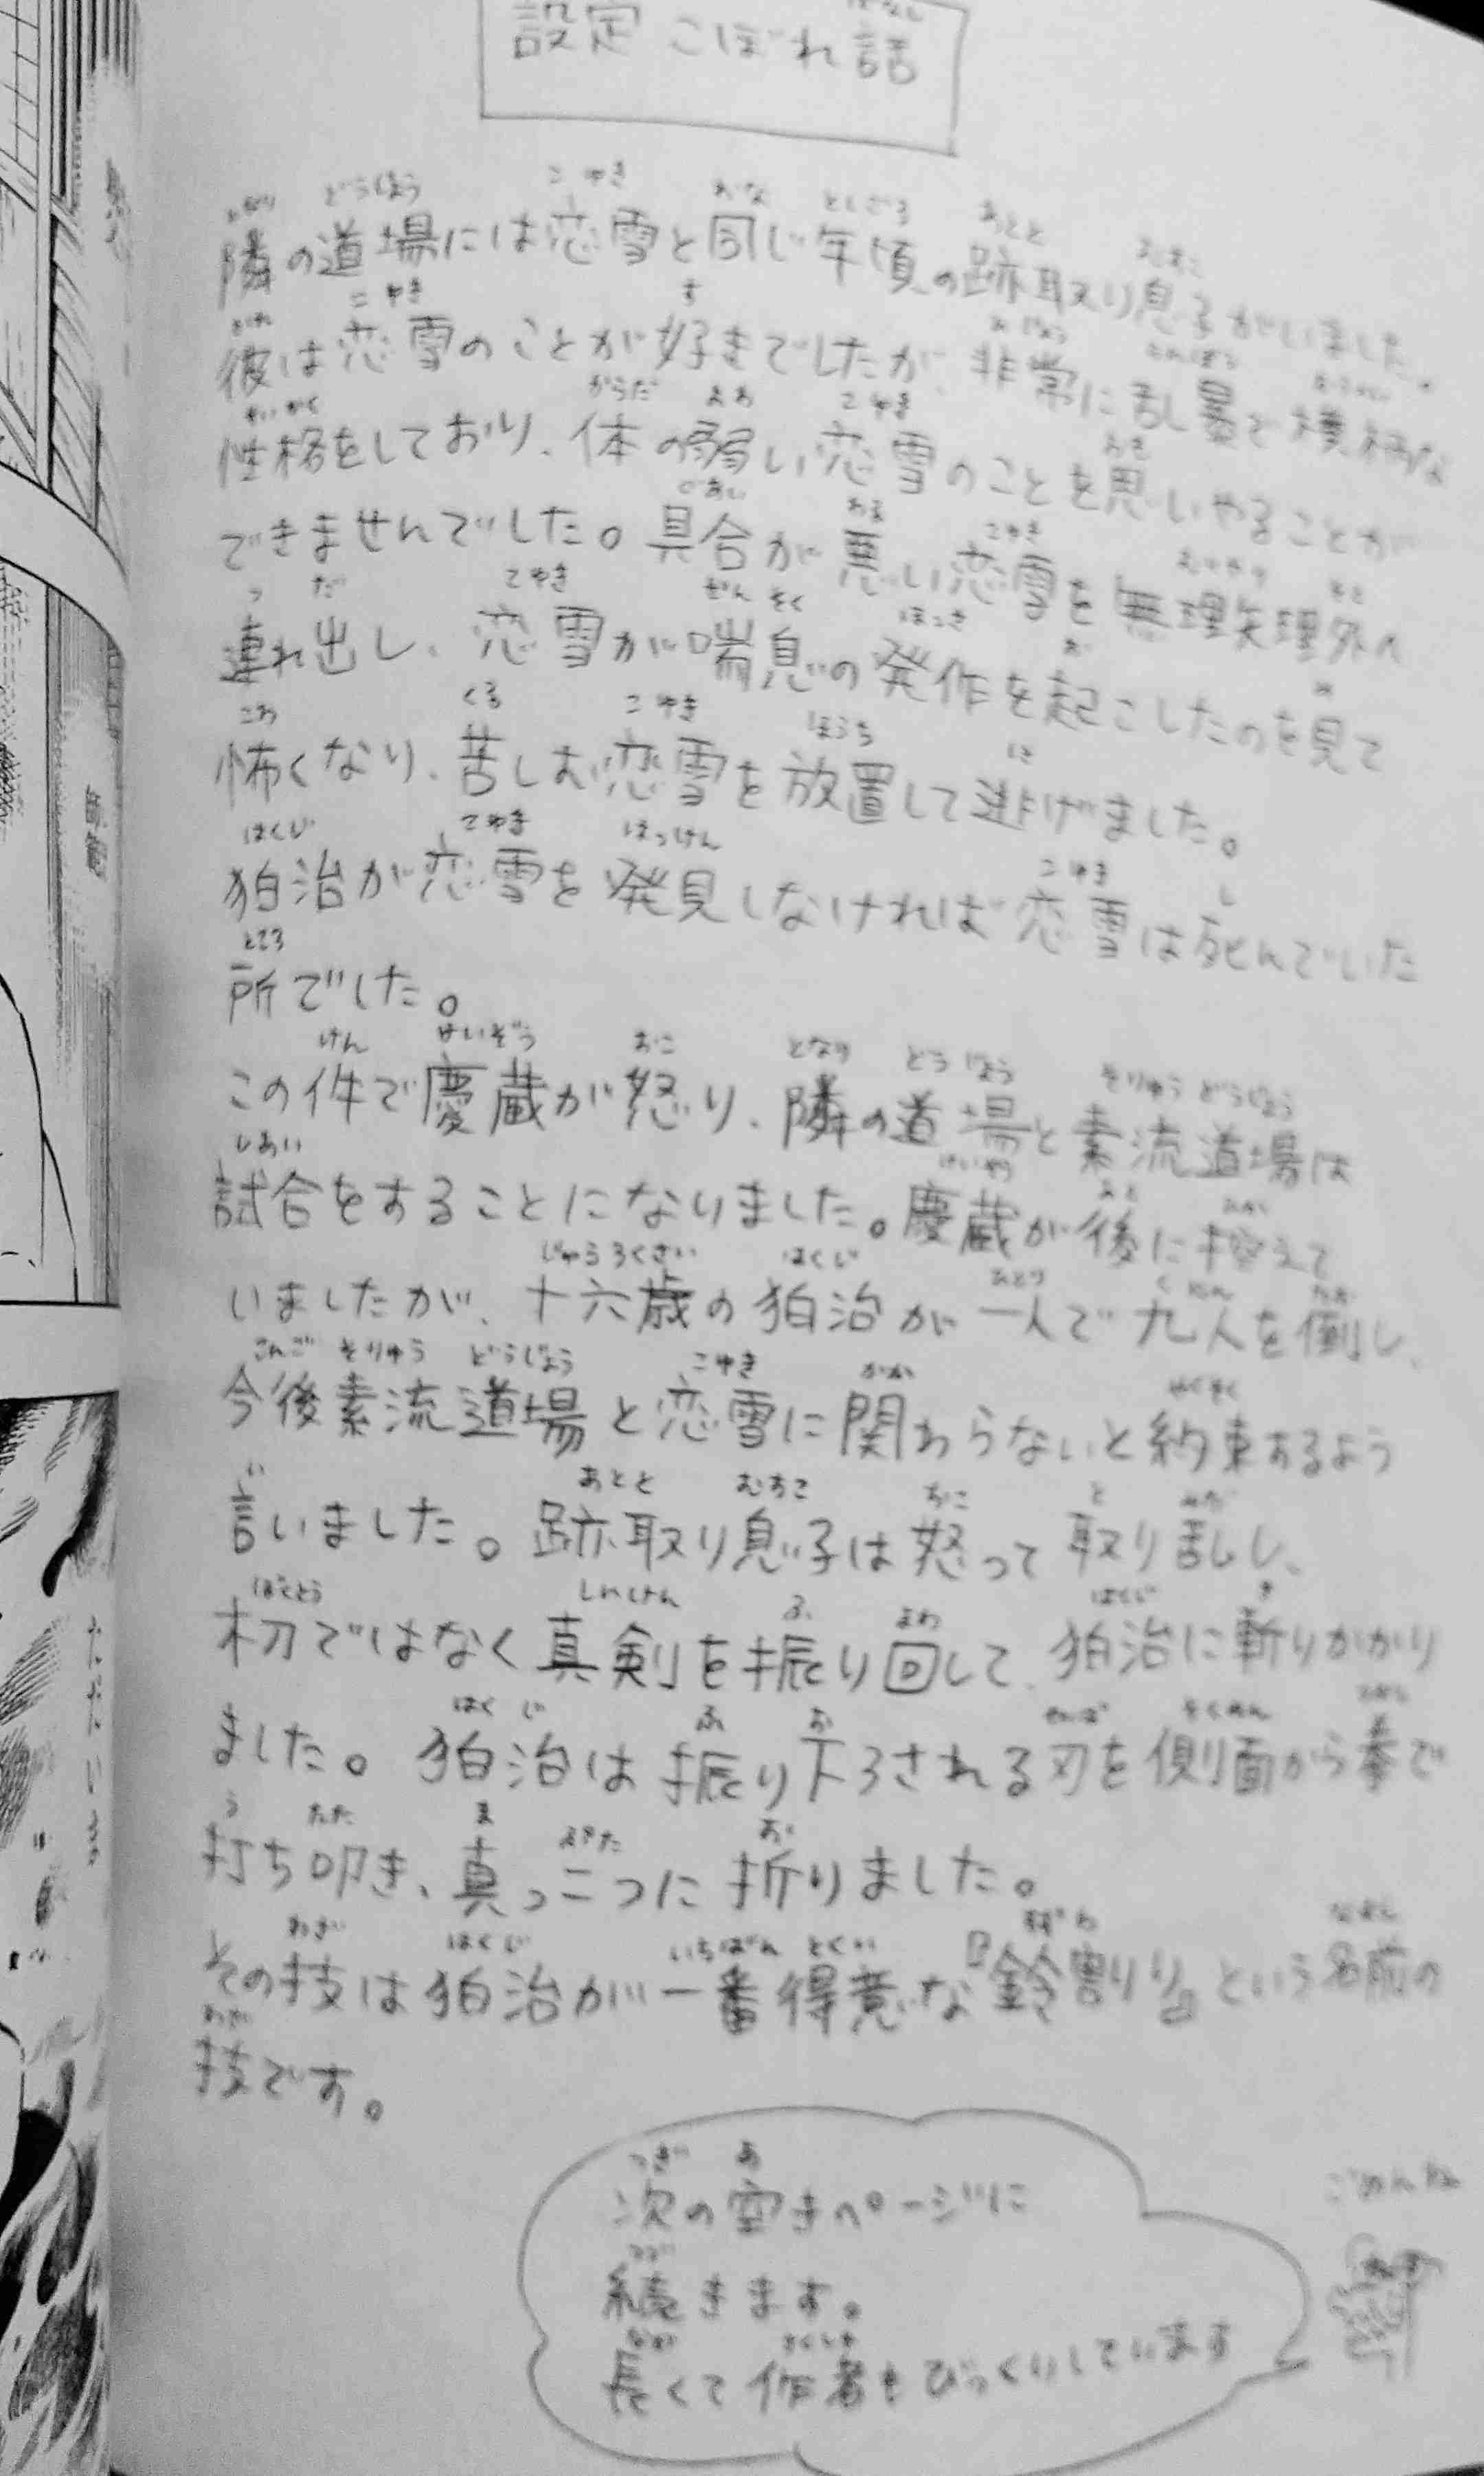 設定こぼれ話
隣の道場には恋雪と同じ年頃の跡取り息子がいました。
彼は恋雪のことが好きでしたが、非常に乱暴で横柄な
性格をしており、体の弱い恋雪のことを思いやることが
できませんでした。具合が悪い恋雪を無理矢理外へ
連れ出し、恋雪が喘息の発作を起こしたのを見て
怖くなり、苦しむ恋雪を放置して逃げました。
狛治が恋雪を発見しなければ恋雪は死んでいた
所でした。
この件で慶蔵が怒り、隣の道場と素流道場は
試合をすることになりました。慶蔵が後に控えて
いましたが、十六歳の狛治が一人で九人を倒し、
今後素流道場と恋雪に関わらないと約束するよう
言いました。跡取り息子は怒って取り乱し、
木刀ではなく真剣を振り回して、狛治に斬りかかり
ました。狛治は振り下ろされる刃を側面から拳で
打ち叩き、真っ二つに折りました。
その技は狛治が一番得意な『鈴割り』という名前の
技です。
次の空きページに
続きます。
長くて作者もびっくりしています
ごめんね